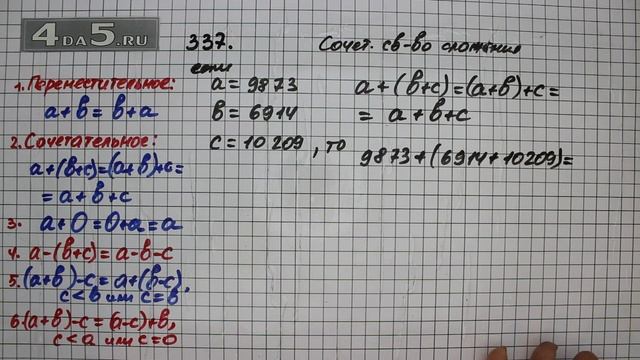 4DA5.RU
337.
Сочет. св-во сложение
1. Переместительное:
a+b=b+a
2. Сочетательное:
a+(b+c)=(a+b)+c=
=a+b+c
3. a+0=0+a=a
4. a-(b+c)=a-b-c
5. (a+b)-c=a+(b-c),
c<b или c=b
6. (a+b)-c=(a-c)+b,
c<a или c=0
если
a=9873
b=6914
c=10209, то
a+(b+c)=(a+b)+c=
= a+b+c
9873+(6914+10209)=